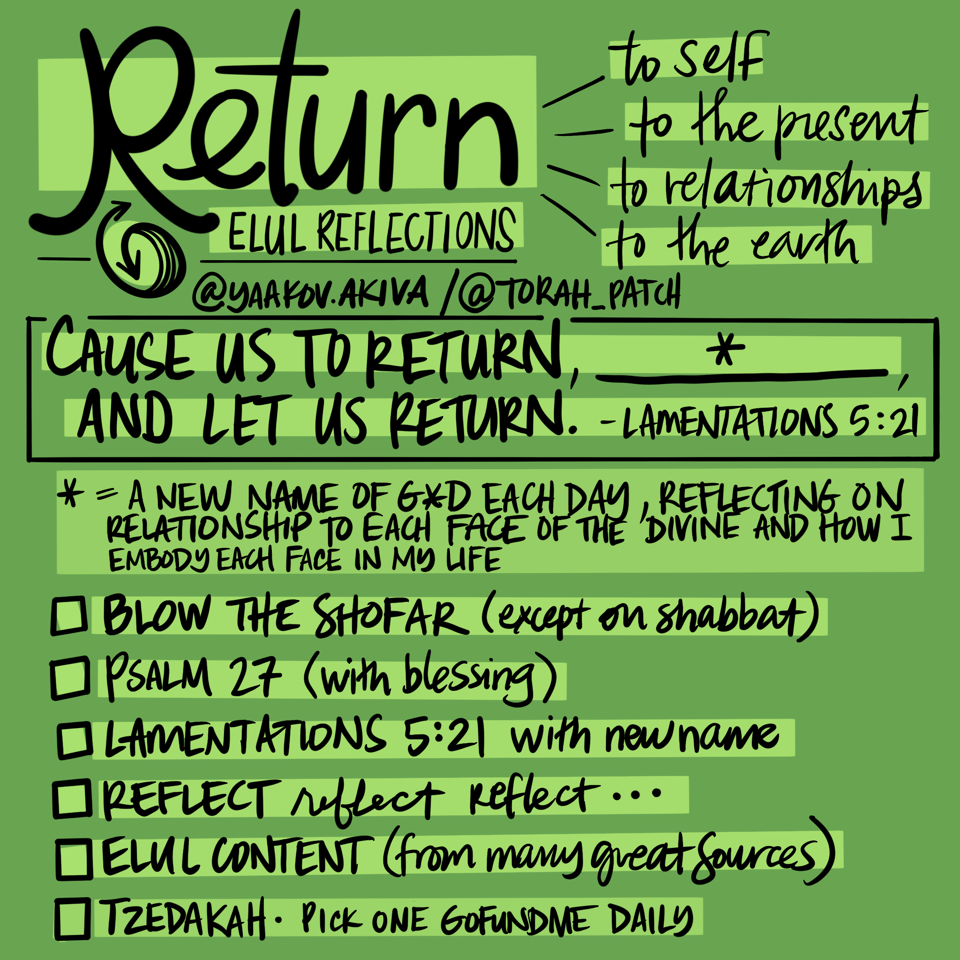 Return
to self
to the present
to relationships
to the earth
ELUL REFLECTIONS
@YAAKOV.AKIVA / @TORAH_PATCH
CAUSE US TO RETURN, ___*___,
AND LET US RETURN. - LAMENTATIONS 5:21
* = A NEW NAME OF G*D EACH DAY, REFLECTING ON
RELATIONSHIP TO EACH FACE OF THE DIVINE AND HOW I
EMBODY EACH FACE IN MY LIFE
BLOW THE SHOFAR (except on shabbat)
PSALM 27 (with blessing)
LAMENTATIONS 5:21 with new name
REFLECT reflect reflect ...
ELUL CONTENT (from many great sources)
TZEDAKAH · PICK ONE GOFUNDME DAILY